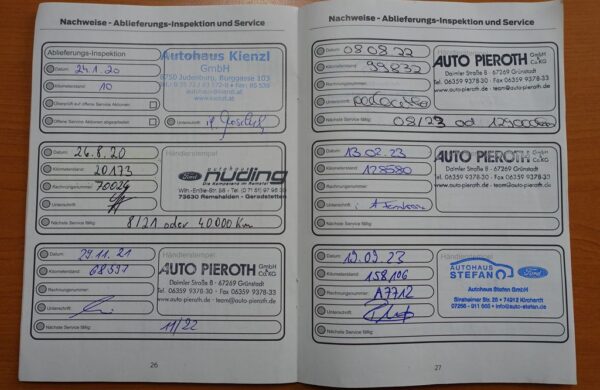 Nachweise - Ablieferungs-Inspektion und Service
Ablieferungs-Inspektion
Autohaus Kienzl
GmbH
8750 Judenburg, Burggasse 103
www.kienzl.at
Datum: 24.1.20
Kilometerstand: 10
Überprüft auf offene Service Aktionen:
Offene Service Aktionen abgearbeitet:
Unterschrift:
Datum: 26.8.20
Händlerstempel
Kilometerstand: 20173
autohaus
Ford nuding
Die Kompetenz im Remstal
Rechnungsnummer: 70024
Unterschrift:
73630 Remshalden - Geradstetten
Nächste Service fällig: 8/21 oder 40000 Km
Datum: 29.11.21
Händlerstempel
Kilometerstand: 68597
AUTO PIEROTH GmbH & Co.KG
Daimler Straße 8 · 67269 Grünstadt
Rechnungsnummer:
Tel. 06359 9378-30 · Fax 06359 9378-33
www.auto-pieroth.de
Unterschrift:
Nächste Service fällig: 11/22
26
Nachweise - Ablieferungs-Inspektion und Service
Datum: 08.08.22
Kilometerstand: 99832
AUTO PIEROTH GmbH & Co.KG
Daimler Straße 8 · 67269 Grünstadt
Rechnungsnummer:
Tel. 06359 9378-30 · Fax 06359 9378-33
www.auto-pieroth.de
Unterschrift:
Nächste Service fällig: 08/23 od
Datum: 13.02.23
Händlerstempel
Kilometerstand: 128580
AUTO PIEROTH GmbH & Co.KG
Daimler Straße 8 · 67269 Grünstadt
Rechnungsnummer:
Tel. 06359 9378-30 · Fax 06359 9378-33
www.auto-pieroth.de
Unterschrift:
Nächste Service fällig:
Datum: 19.09.23
Händlerstempel
Kilometerstand: 158106
AUTOHAUS STEFAN Ford
Rechnungsnummer: A7712
Autohaus Stefan GmbH
Sinsheimer Str. 20 · 74912 Kirchardt
Unterschrift:
07266 - 911 000 · info@auto-stefan.de
Nächste Service fällig:
27